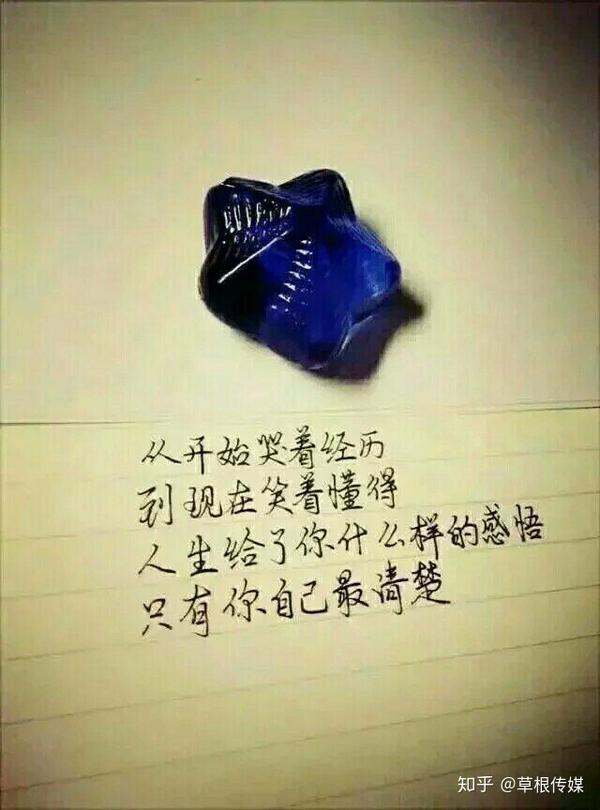 从开始哭着经历
到现在笑着懂得
人生给了你什么样的感悟
只有你自己最清楚
知乎 @草根传媒